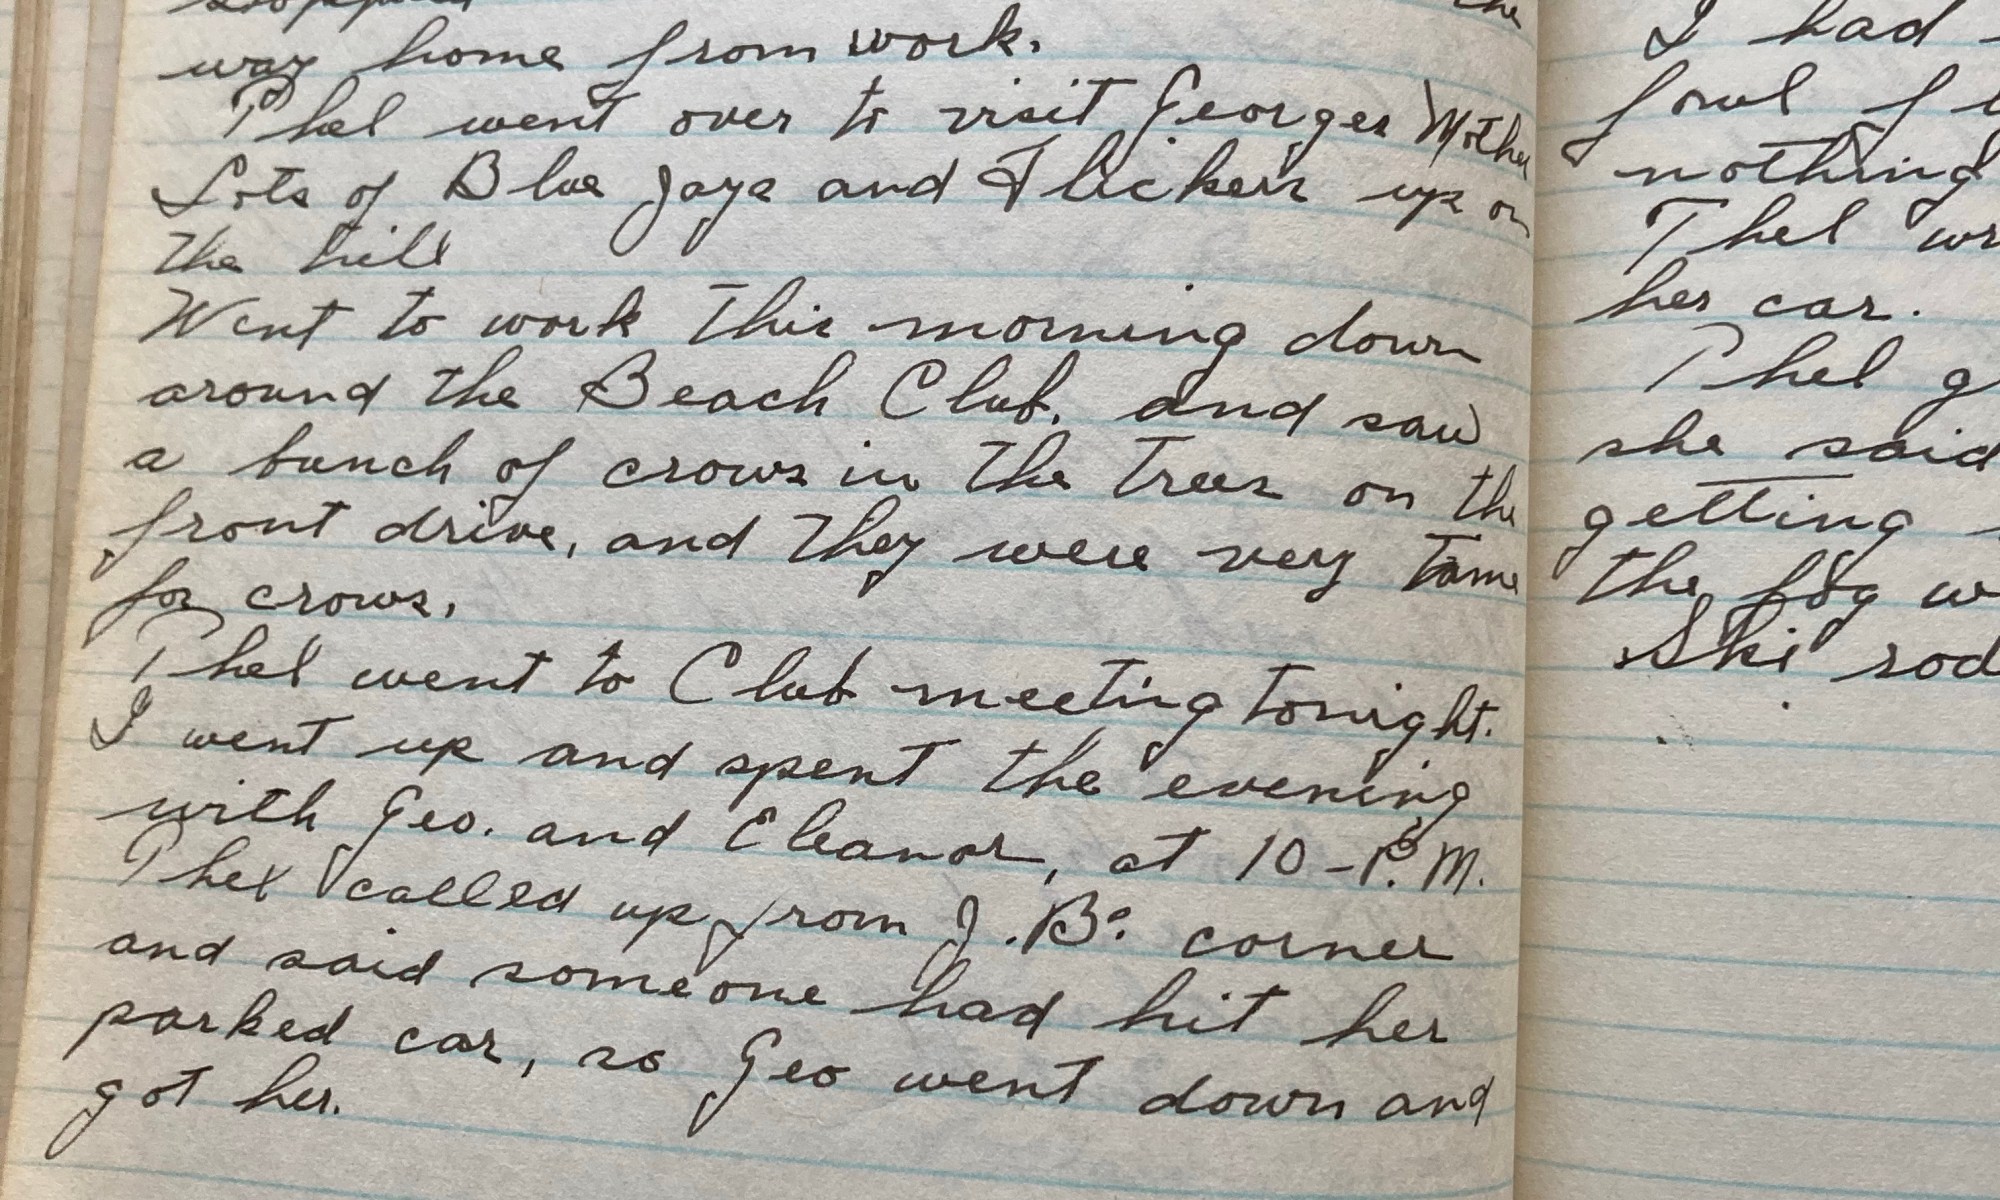 stopped the
way home from work.
Thel went over to visit Georges Mother
Lots of Blue Jays and Flickers up on
the hill
Went to work this morning down
around the Beach Club. and saw
a bunch of crows in the trees on the
front drive, and they were very tame
for crows.
Thel went to Club meeting tonight.
I went up and spent the evening
with Geo. and Eleanor, at 10-P.M.
Thel called up from J.B. corner
and said someone had hit her
parked car, so Geo went down and
got her.
I had
fowl
nothing
Thel
her car.
Thel
she said
getting
the fog
Ski rod